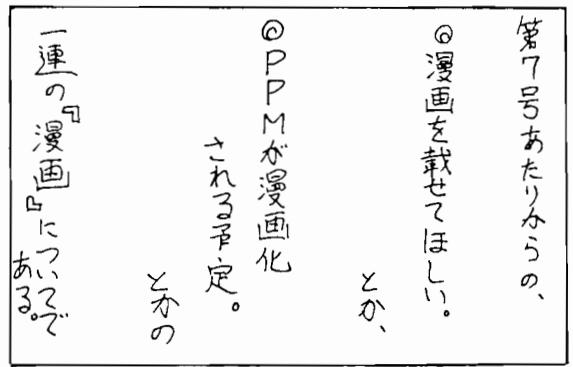 第7号あたりからの、
◎漫画を載せてほしい。
とか、
◎PPMが漫画化
される予定。
とかの
一連の『漫画』についてで
ある。